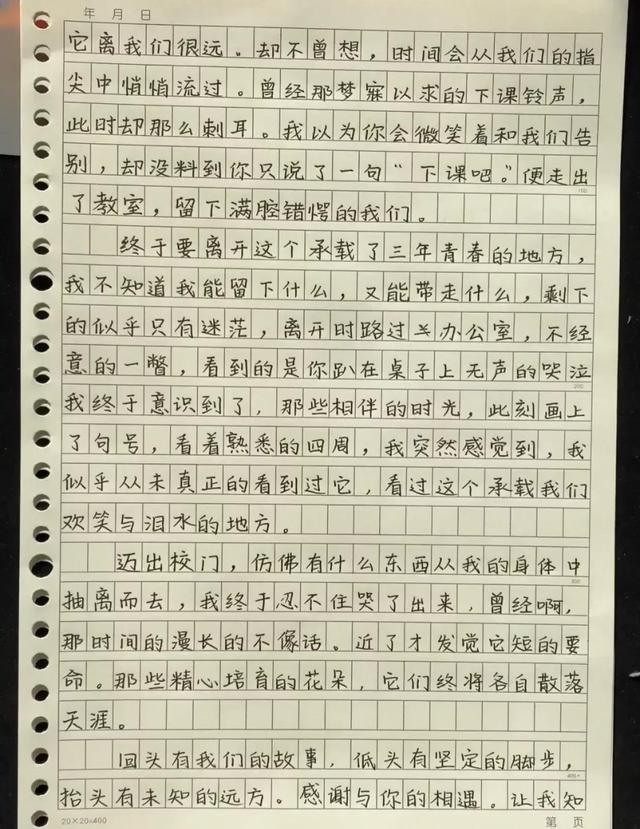 年 月 日
它离我们很远。却不曾想，时间会从我们的指
尖中悄悄流过。曾经那梦寐以求的下课铃声，
此时却那么刺耳。我以为你会微笑着和我们告
别，却没料到你只说了一句“下课吧。”便走出
了教室，留下满腔错愕的我们。
终于要离开这个承载了三年青春的地方，
我不知道我能留下什么，又能带走什么，剩下
的似乎只有迷茫，离开时路过办公室，不经
意的一瞥，看到的是你趴在桌子上无声的哭泣
我终于意识到了，那些相伴的时光，此刻画上
了句号，看着熟悉的四周，我突然感觉到，我
似乎从未真正的看到过它，看过这个承载我们
欢笑与泪水的地方。
迈出校门，仿佛有什么东西从我的身体中
抽离而去，我终于忍不住哭了出来，曾经啊，
那时间的漫长的不像话。近了才发觉它短的要
命。那些精心培育的花朵，它们终将各自散落
天涯。
回头有我们的故事，低头有坚定的脚步，
抬头有未知的远方。感谢与你的相遇。让我知
20×20=400 第 页